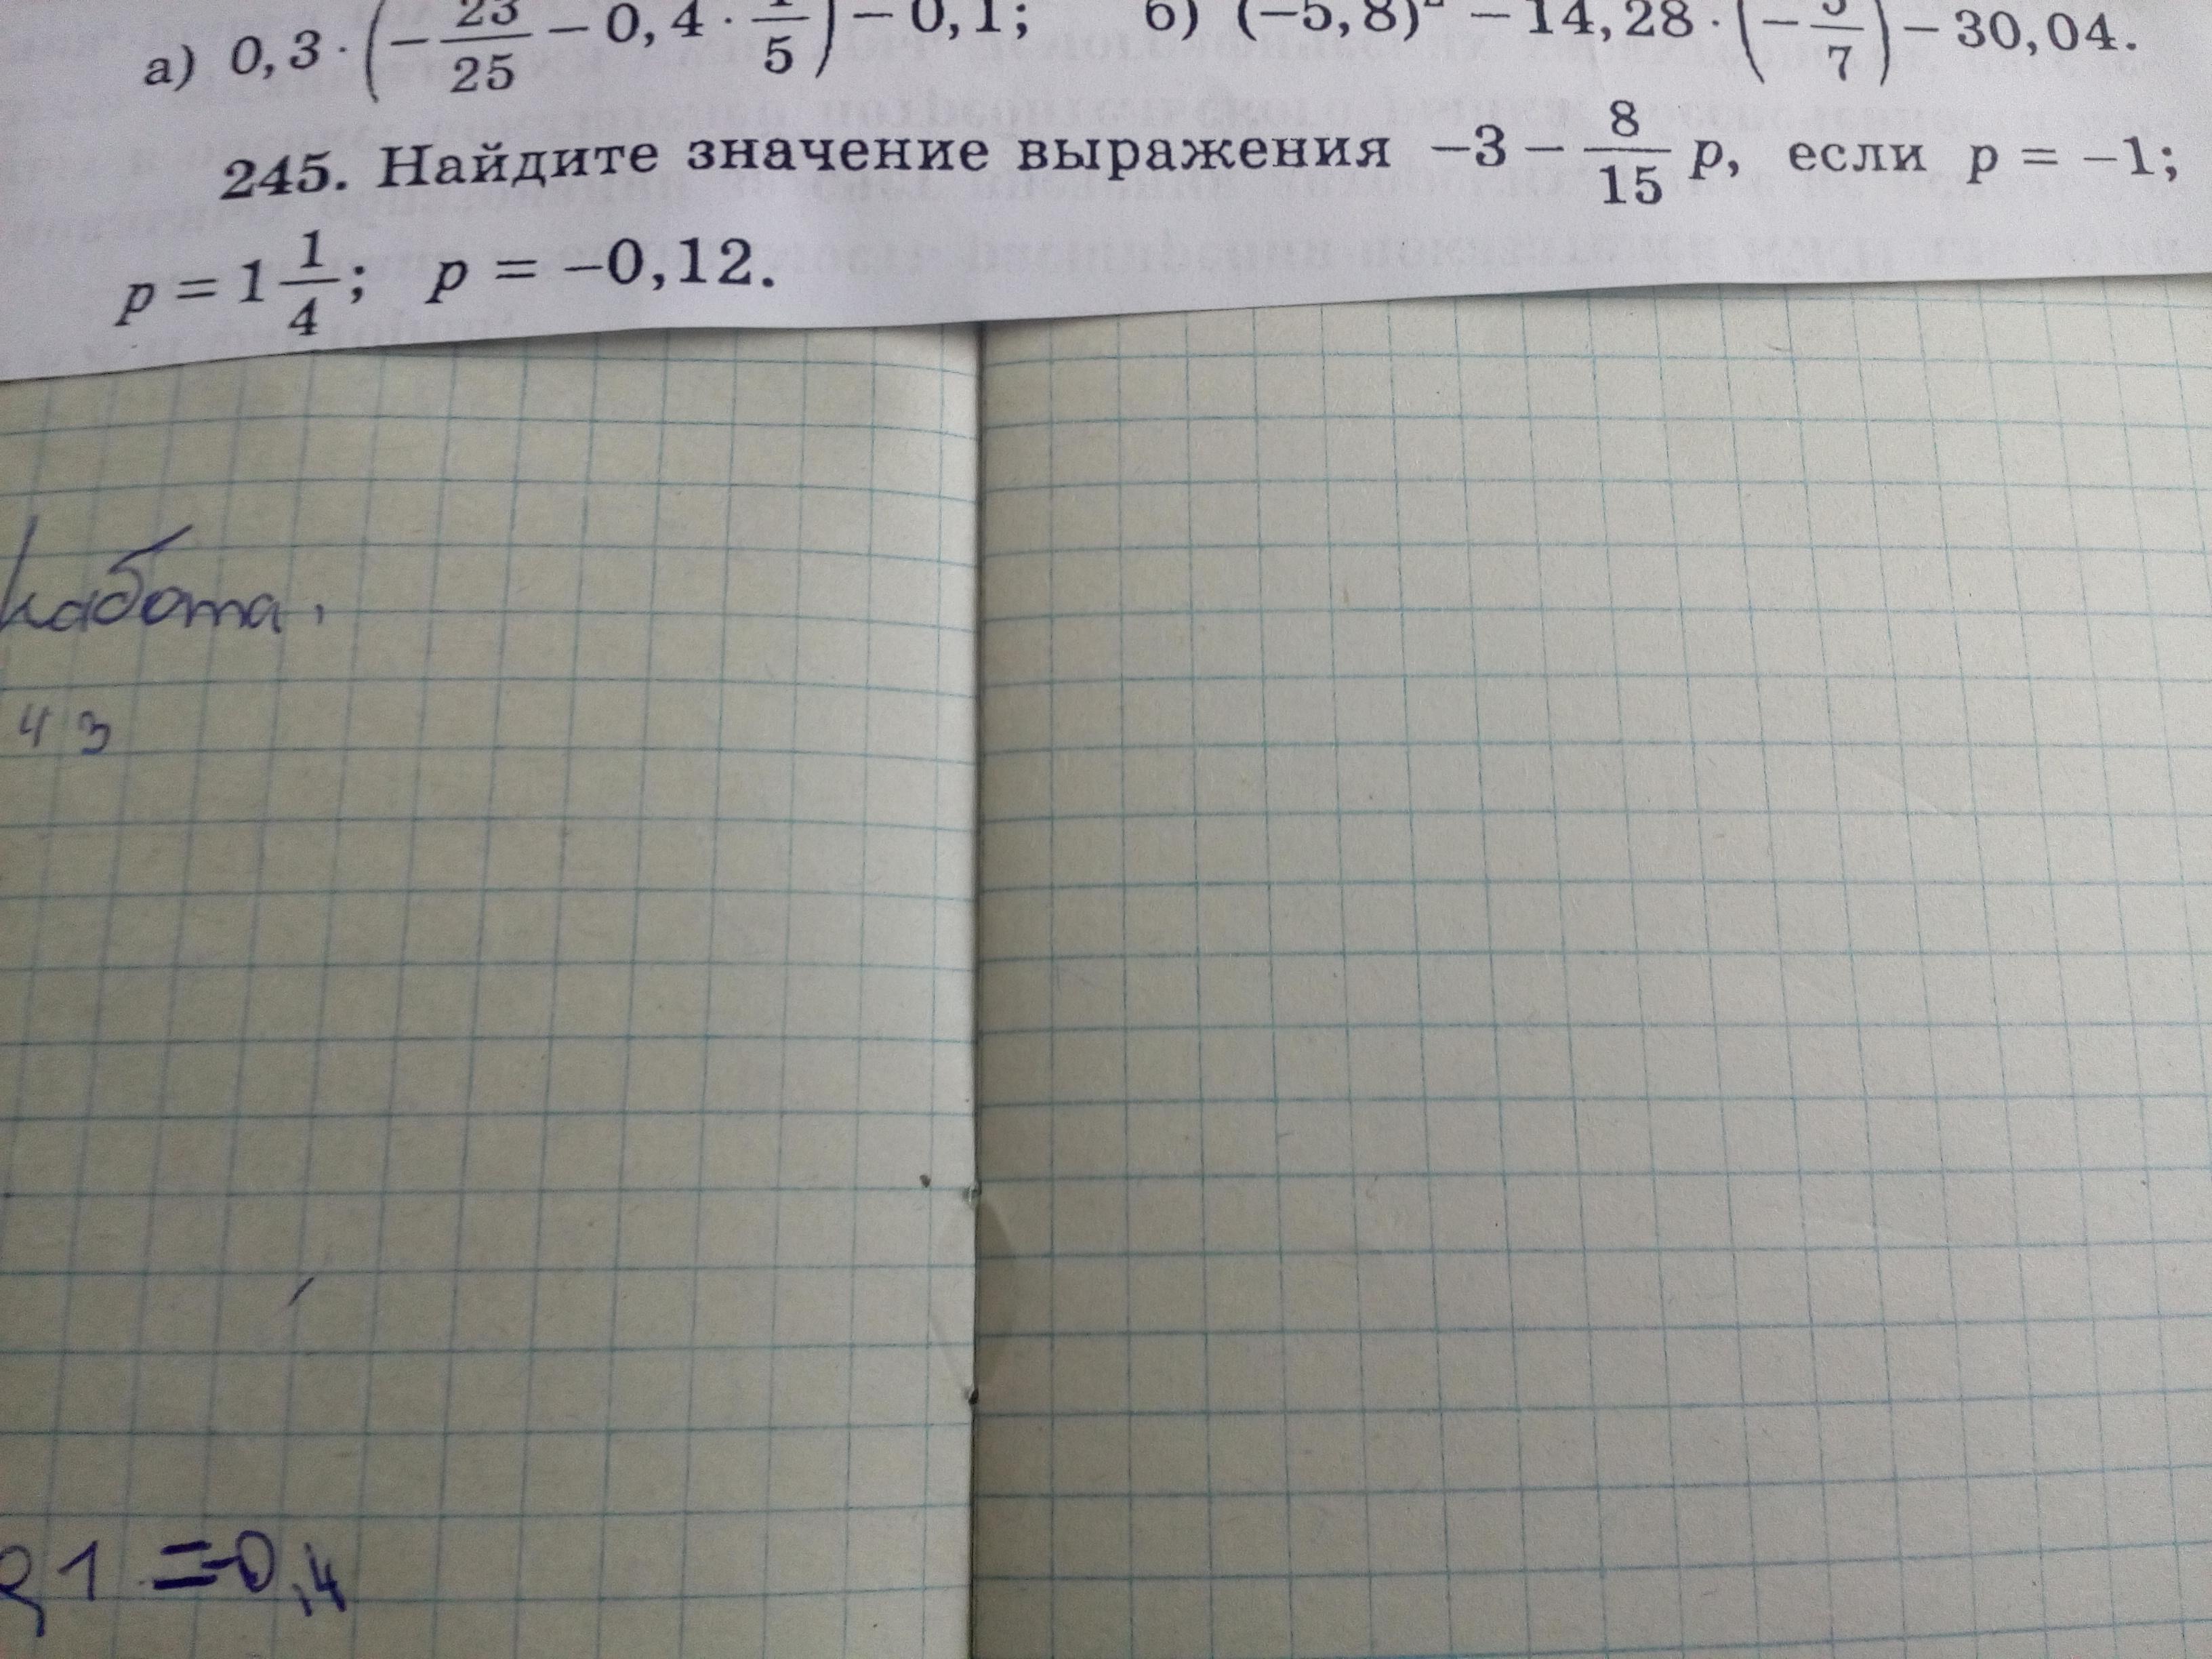 а) 0,3 · (−23/25 − 0,4 · 1/5) − 0,1; б) (−5,8)² − 14,28 · (−3/7) − 30,04.
245. Найдите значение выражения −3 − 8/15 p, если p = −1;
p = 1 1/4; p = −0,12.
работа.
43
1 = -0,4